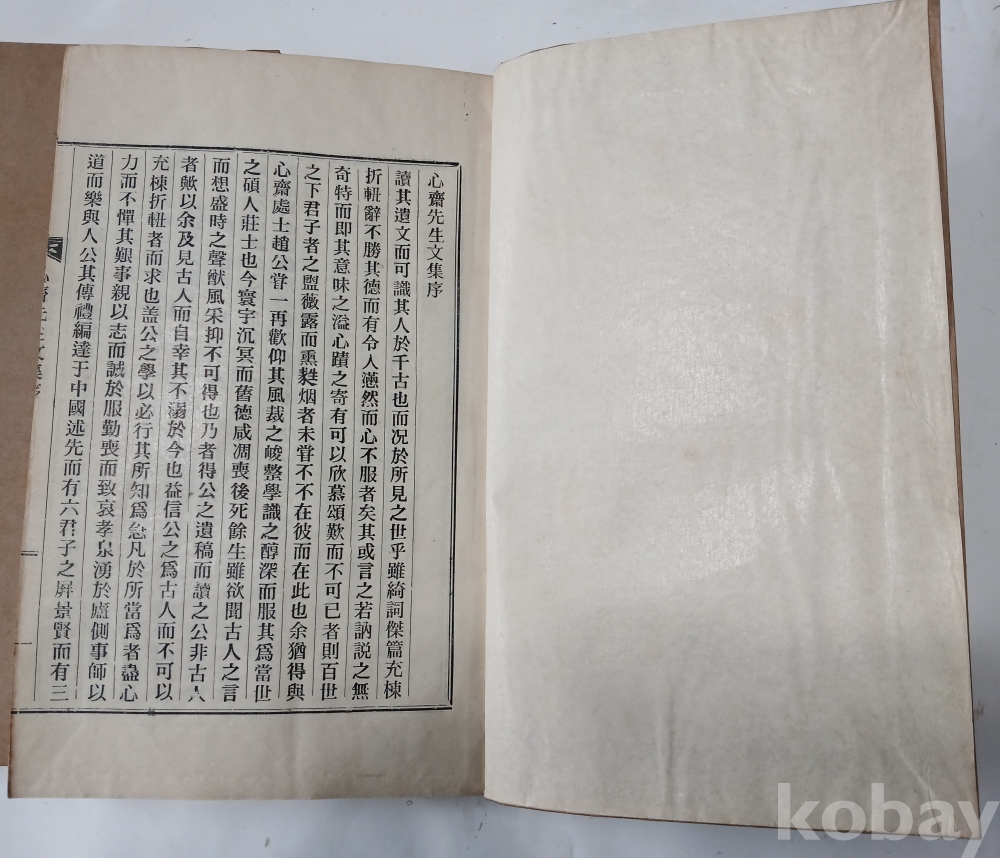 心齋先生文集序
讀其遺文而可識其人於千古也而况於所見之世乎雖綺詞傑篇充棟
折軸辭不勝其德而有令人懣然而心不服者矣其或言之若訥説之無
奇特而即其意味之溢心蹟之寄有可以欣慕頌歎而不可已者則百世
之下君子者之盥薇露而熏㷊烟者未甞不不在彼而在此也余猶得與
心齋處士趙公甞一再歡仰其風裁之峻整學識之醇深而服其爲當世
之碩人莊士也今寰宇沉冥而舊德咸凋喪後死餘生雖欲聞古人之言
而想盛時之聲猷風采抑不可得也乃者得公之遺稿而讀之公非古人
者歟以余及見古人而自幸其不溺於今也益信公之爲古人而不可以
充棟折軸者而求也盖公之學以必行其所知爲急凡於所當爲者盡心
力而不憚其艱事親以志而誠於服勤喪而致哀孝泉湧於廬側事師以
道而樂與人公其傳禮編達于中國述先而有六君子之屛景賢而有三
心齋先生文集序
kobay